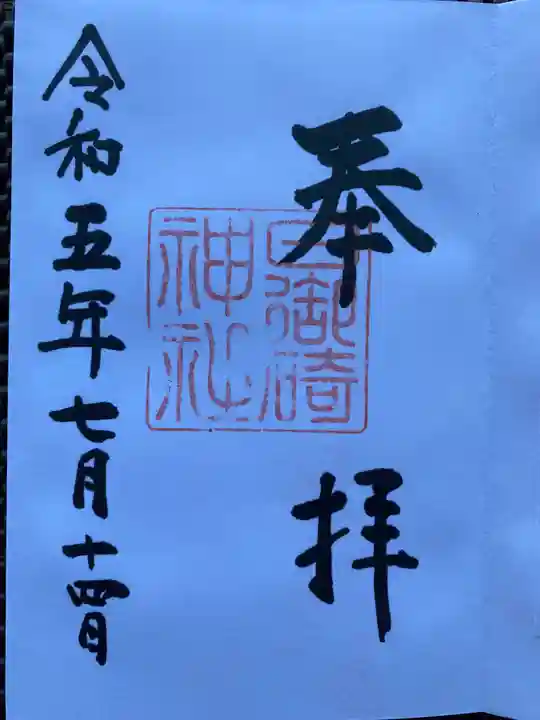 奉拝
日御碕神社
令和五年七月十四日